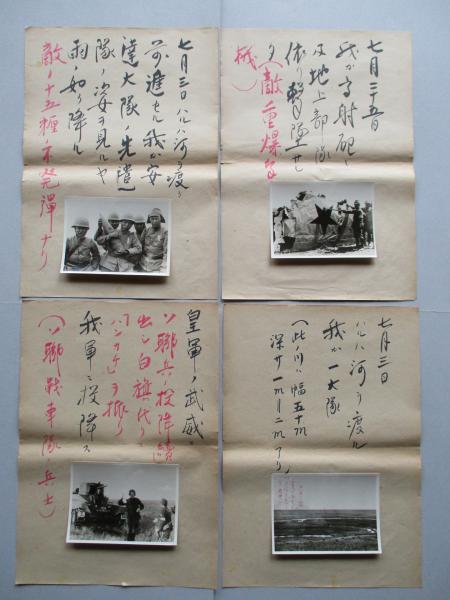 七月二十五日
我ガ高射砲ト
及地上部隊
依リ撃墜セシ
(敵ノ重爆
機)
七月三日ハルハ河ヲ渡リ
前進セル我ガ安
達大隊ノ先遣
隊ノ姿ヲ見ルヤ
雨ノ如ク降ル
敵ノ十五糎ノ不発弾ナリ
七月三日
ハルハ河ヲ渡ル
我ガ一大隊
(此川ハ幅五十m
深サ一m―二mアリ)
皇軍ノ武威ニ
ソ聯兵ノ投降續
出シ白旗ノ代リニ
「ハンカチ」ヲ振リ
我軍ニ投降ス
(ソ聯戦車隊ノ兵士)